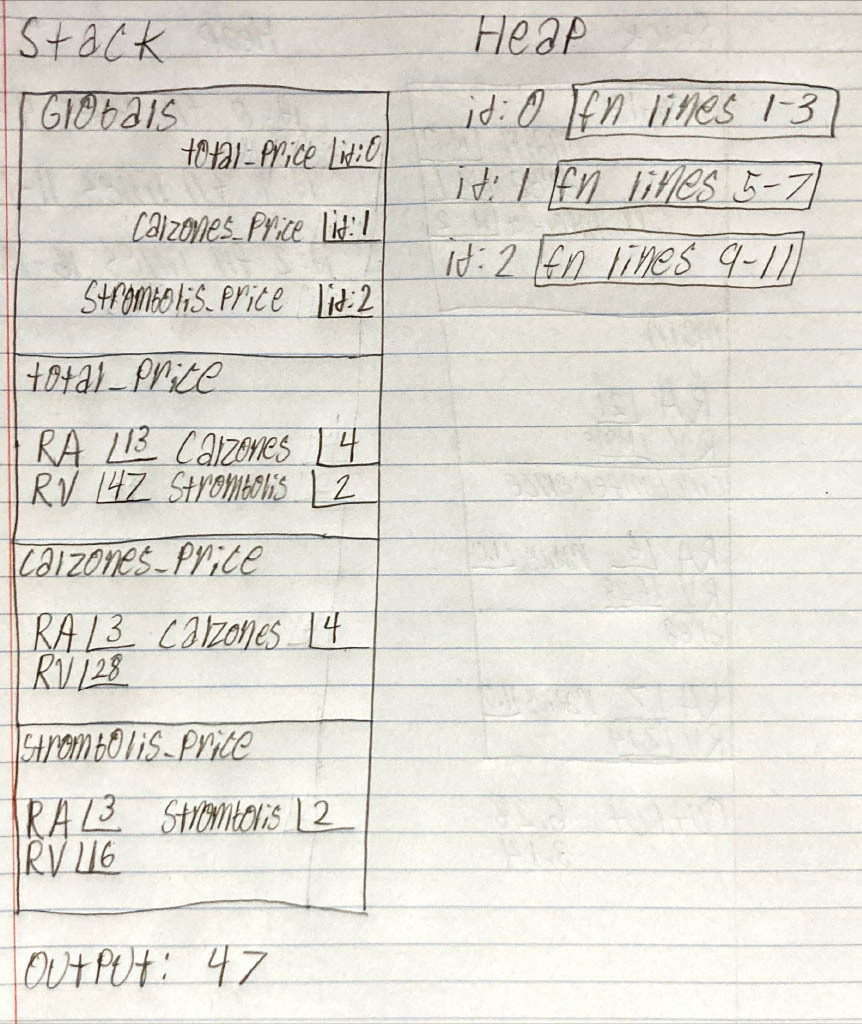 Stack
Globals
total_price id:0
calzones_price id:1
strombolis_price id:2
total_price
RA 13 calzones 4
RV 47 strombolis 2
calzones_price
RA 3 calzones 4
RV 28
strombolis_price
RA 3 strombolis 2
RV 16
output: 47
Heap
id:0 fn lines 1-3
id:1 fn lines 5-7
id:2 fn lines 9-11